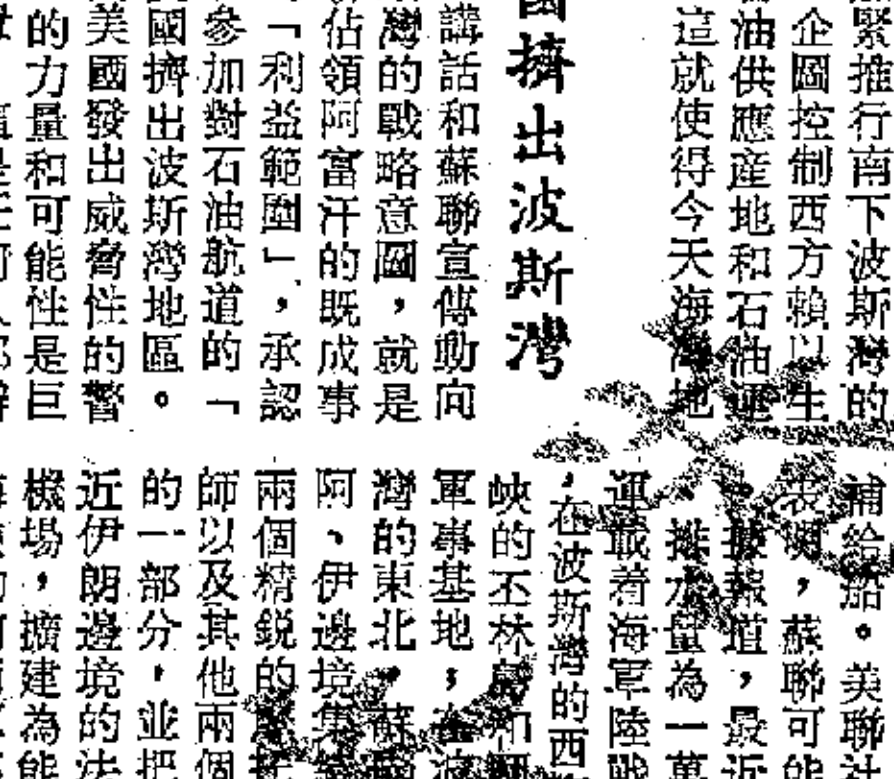 緊推行南下波斯灣的
企圖控制西方賴以生
油供應産地和石油運
這就使得今天海灣地
擠出波斯灣
講話和蘇聯宣傳動向
灣的戰略意圖,就是
佔領阿富汗的既成事
「利益範圍」,承認
參加對石油航道的「
國擠出波斯灣地區。
美國發出威脅性的警
的力量和可能性是巨
補給船。美聯社
表明,蘇聯可能
據報道,最近
排水量為一萬
運載着海軍陸戰
,在波斯灣的西
峽的丕林島和
軍事基地;在波
灣的東北,蘇
阿、伊邊境集
兩個精鋭的
師以及其他兩個
的一部分,並把
近伊朗邊境的法
機場,擴建為能